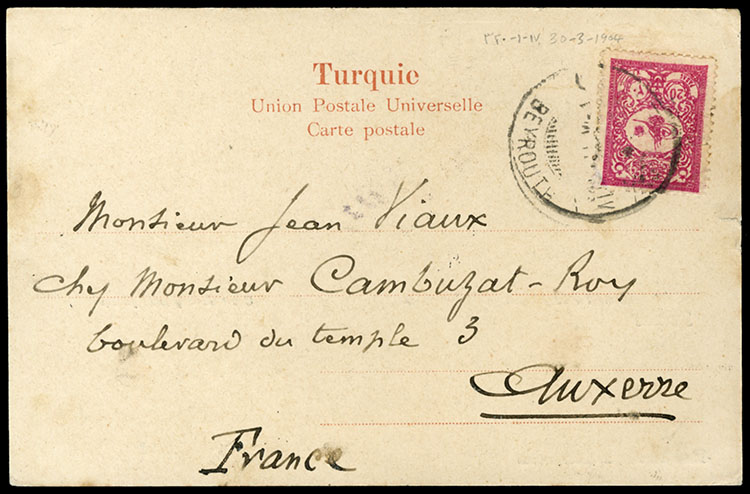 30-3-1904
Turquie
Union Postale Universelle
Carte postale
BEYROUTH
20
Monsieur Jean Viaux
chez Monsieur Cambuzat-Roy
boulevard du temple 3
Auxerre
France